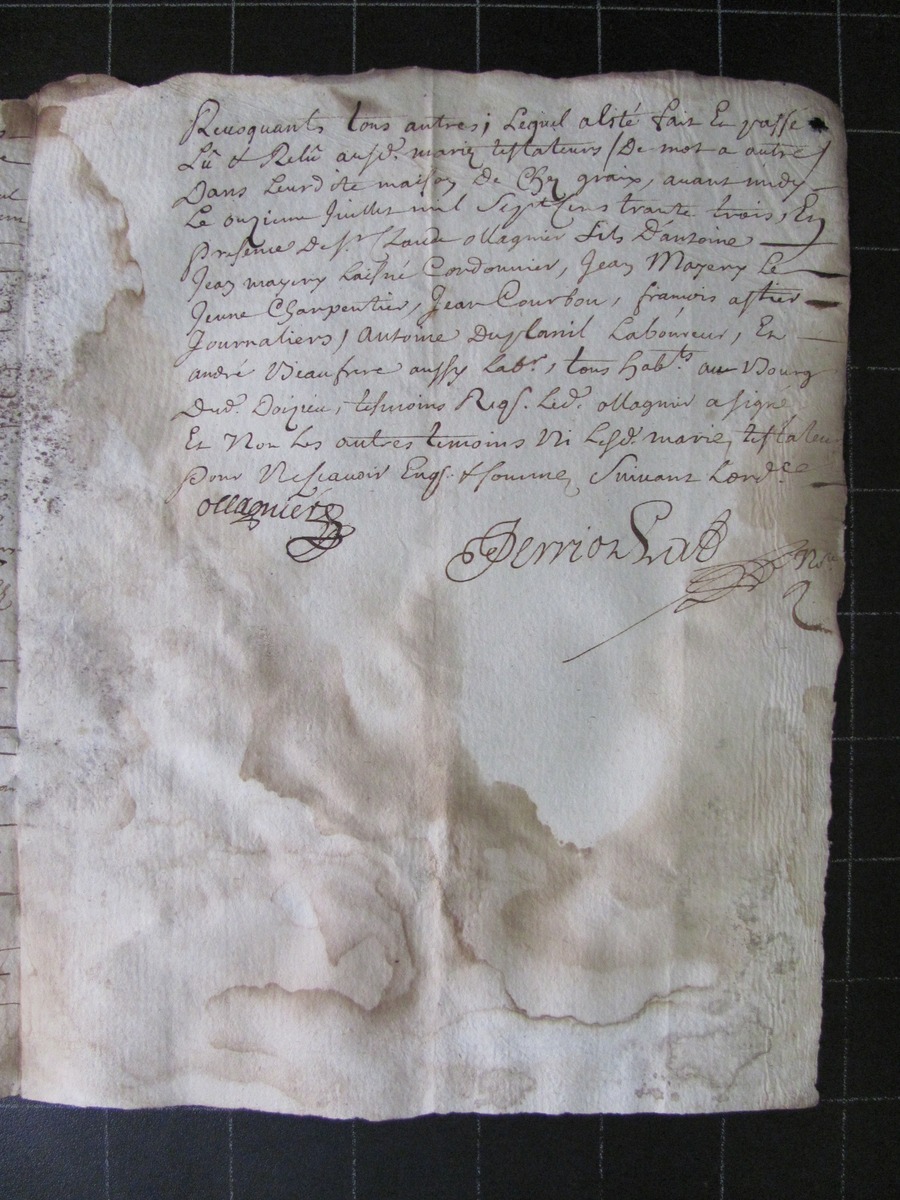 Revoquants tous autres; Lequel a esté fait Et passé
Lû & Relû ausd. mariez testateurs / De mot a autre /
Dans Leurdite maison De Chez graix, avant midy
Le onzieme Juillet mil Sept Cens trante trois, En
Presence De Sr. Claude ollagnier fils D'antoine
Jean mayery Laisné Cordonnier, Jean Mayery Le
Jeune Charpentier, Jean Courbou, francois astier
Journaliers, Antoine Duplanil Laboureur, Et
andré Beaufrere aussy Labr., tous habts. au Bourg
Dud. Doizieu, tesmoins Reqs. Led. ollagnier a signé
Et Non Les autres temoins Ni Lesd. mariez testateu
Pour Ne Scavoir Enqs. & sommez Suivant Lordce
ollagniere
Perrion
No.re